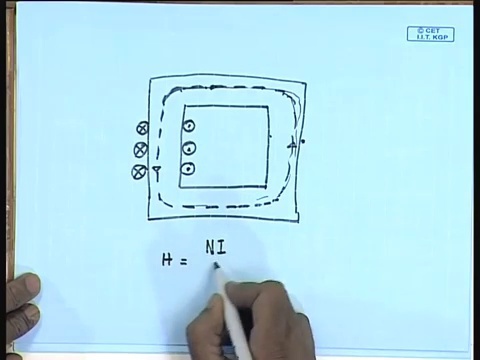 © CET
I.I.T. KGP
H = NI